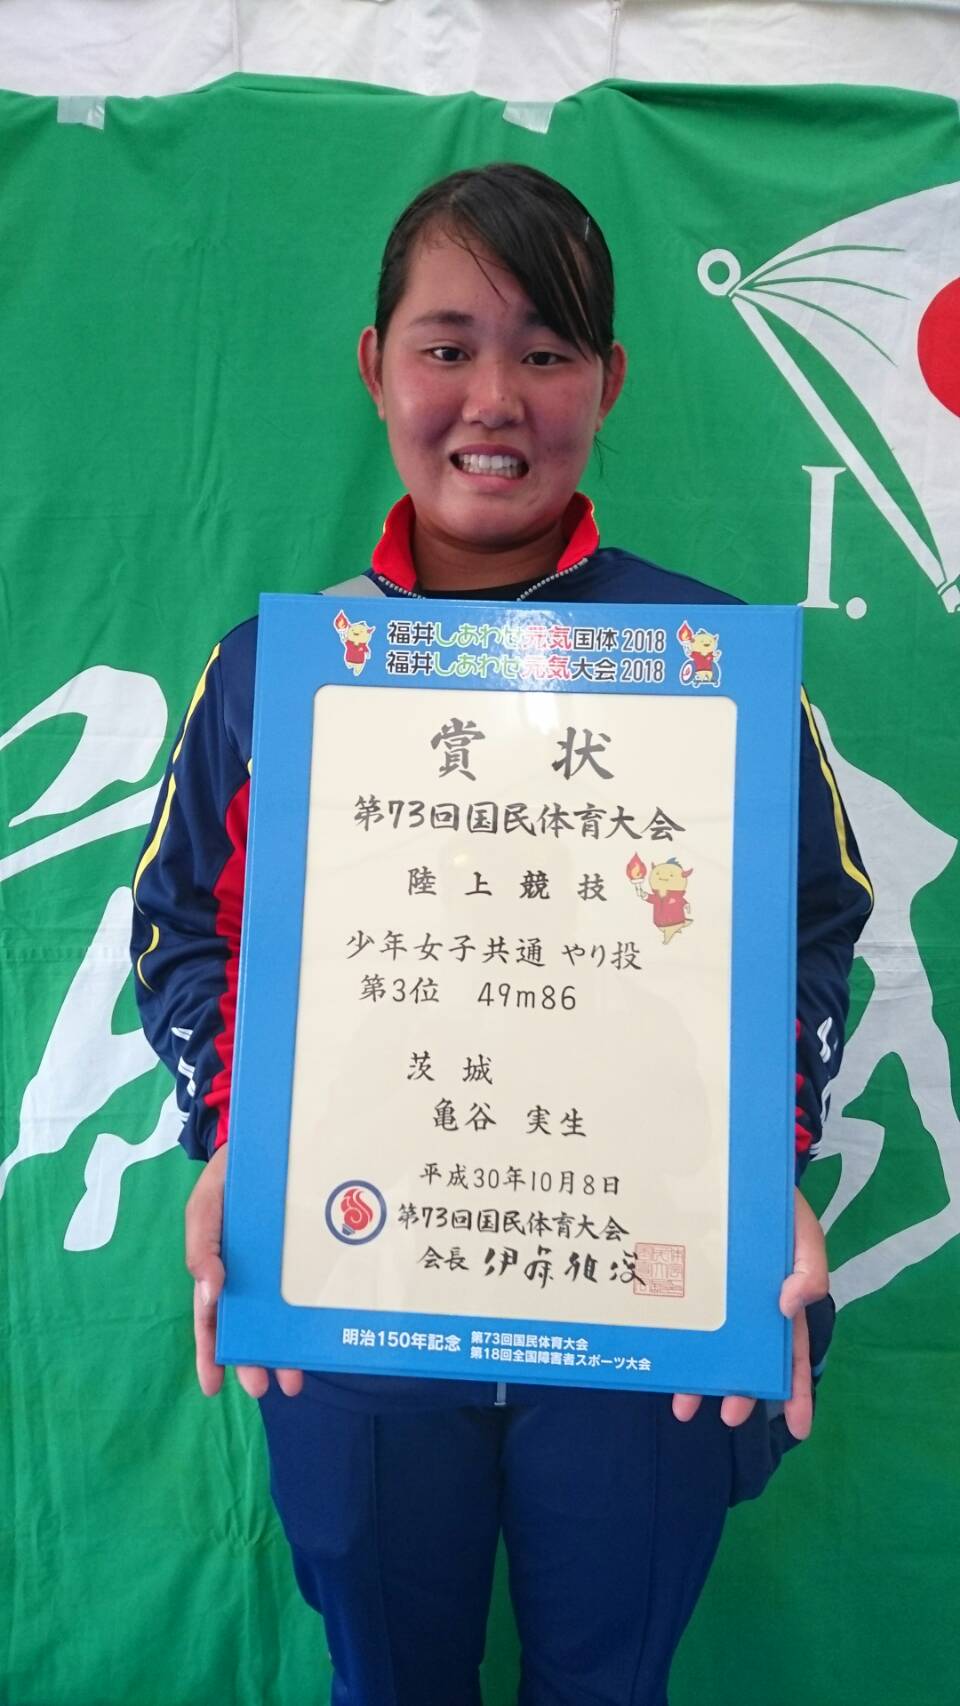 福井しあわせ元気国体2018
福井しあわせ元気大会2018
賞 状
第73回国民体育大会
陸上競技
少年女子共通 やり投
第3位 49m86
茨城
亀谷 実生
平成30年10月8日
第73回国民体育大会
会長 伊藤雅俊
明治150年記念 第73回国民体育大会
第18回全国障害者スポーツ大会
I.